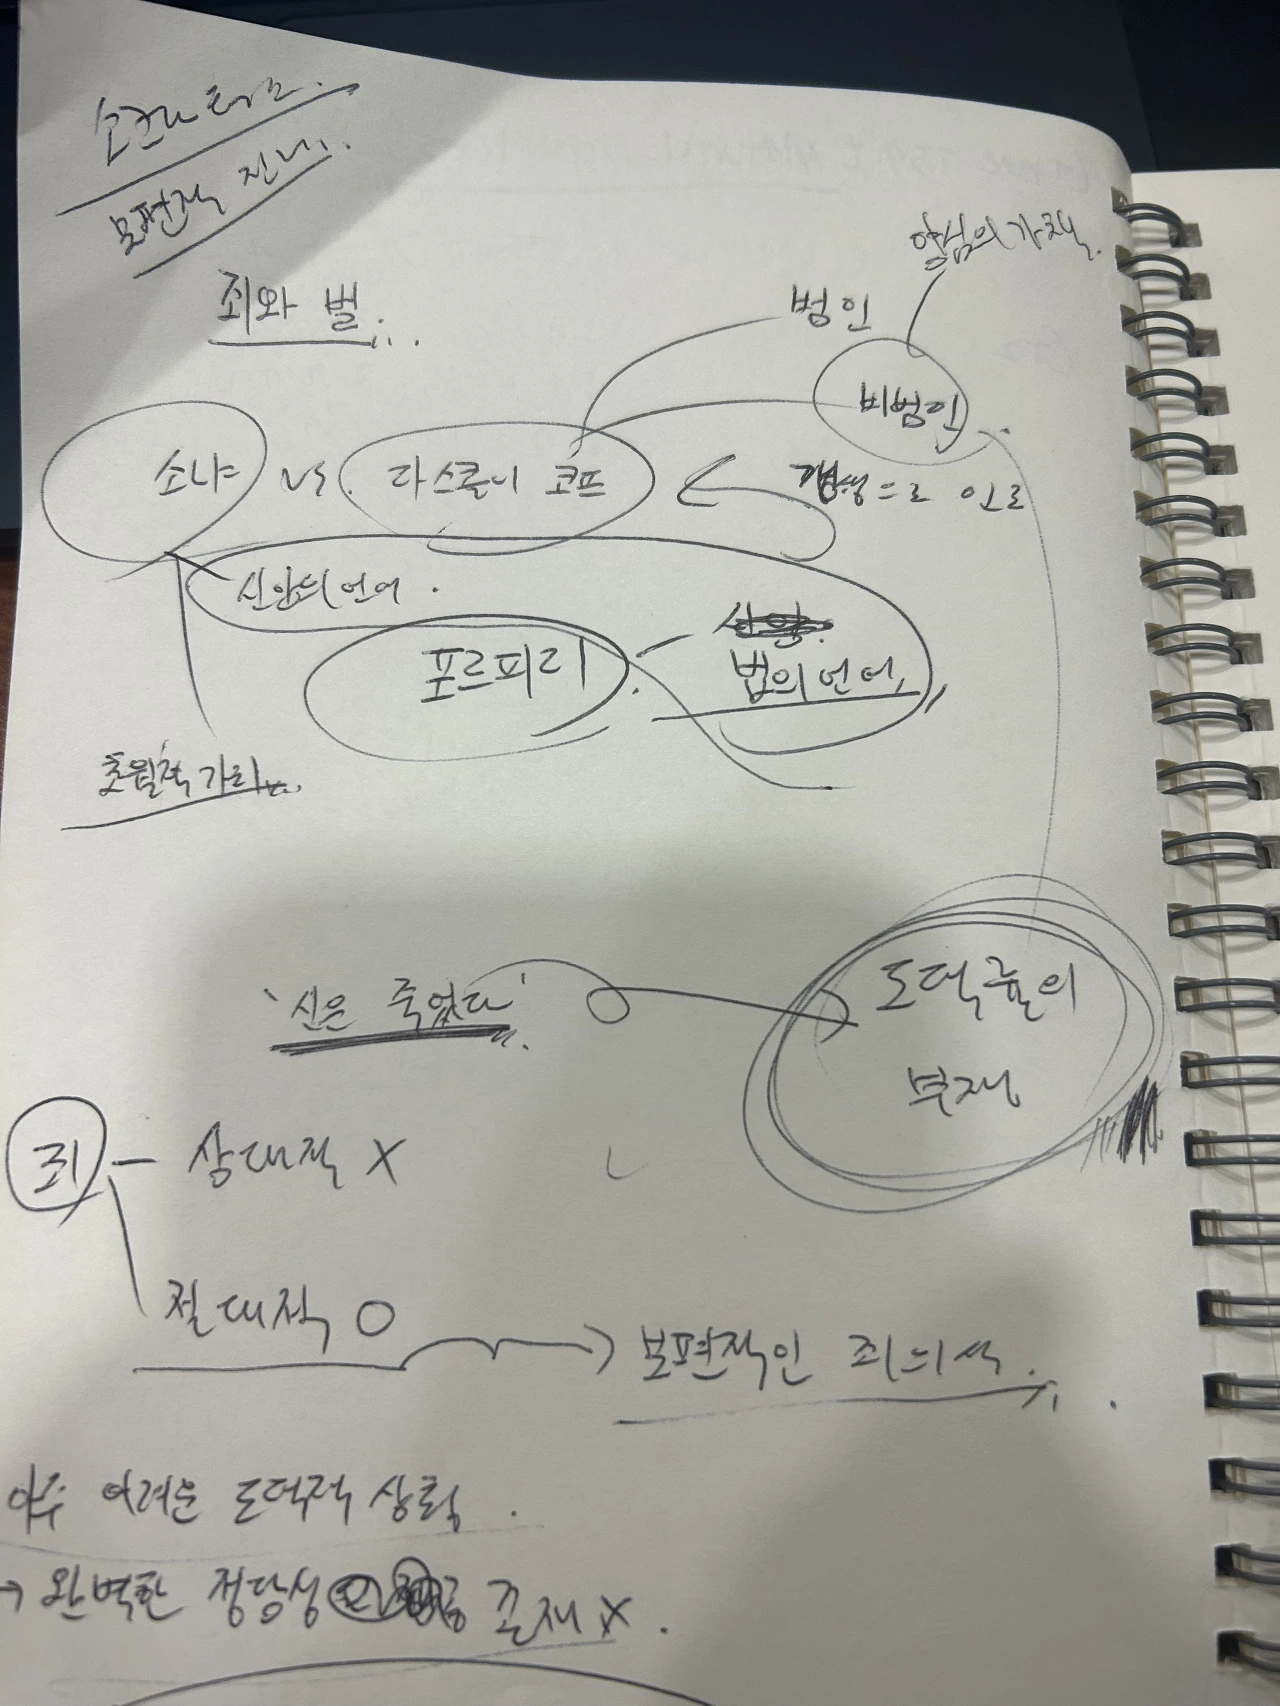 소크라테스.
보편적 진리.
양심의 가책.
죄와 벌...
범인
비범인
소냐 vs. 라스콜니코프
갱생으로 인도
신앙의 언어.
포르피리
법의 언어.
초월적 가치...
'신은 죽었다'
도덕률의
부재
죄 - 상대적 X
절대적 O → 보편적인 죄의식.
아주 어려운 도덕적 상황.
→ 완벽한 정당성 존재 X.